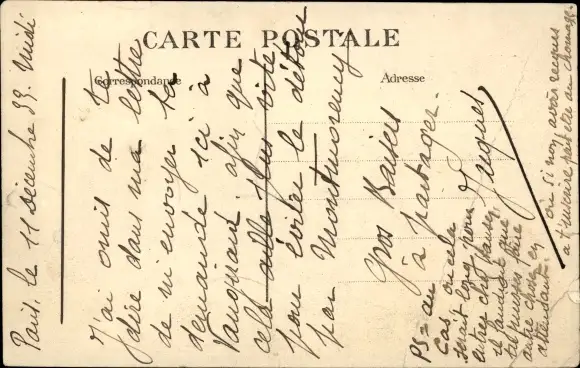 CARTE POSTALE
Correspondance
Adresse
Paris, le 11 Décembre 39. Midi
J'ai omis de te
dire dans ma lettre
de m'envoyer ta
demande ici à
Vauquant afin que
cela aille plus vite
pour éviter le détour
par Montmorency
Gros Baisers
à partager.
Jacques
PS = au
Cas où cela
serait long pour
entrer chez
il faudrait que
tu puisses faire
autre chose en
attendant.
ou si non avoir recours
à l'